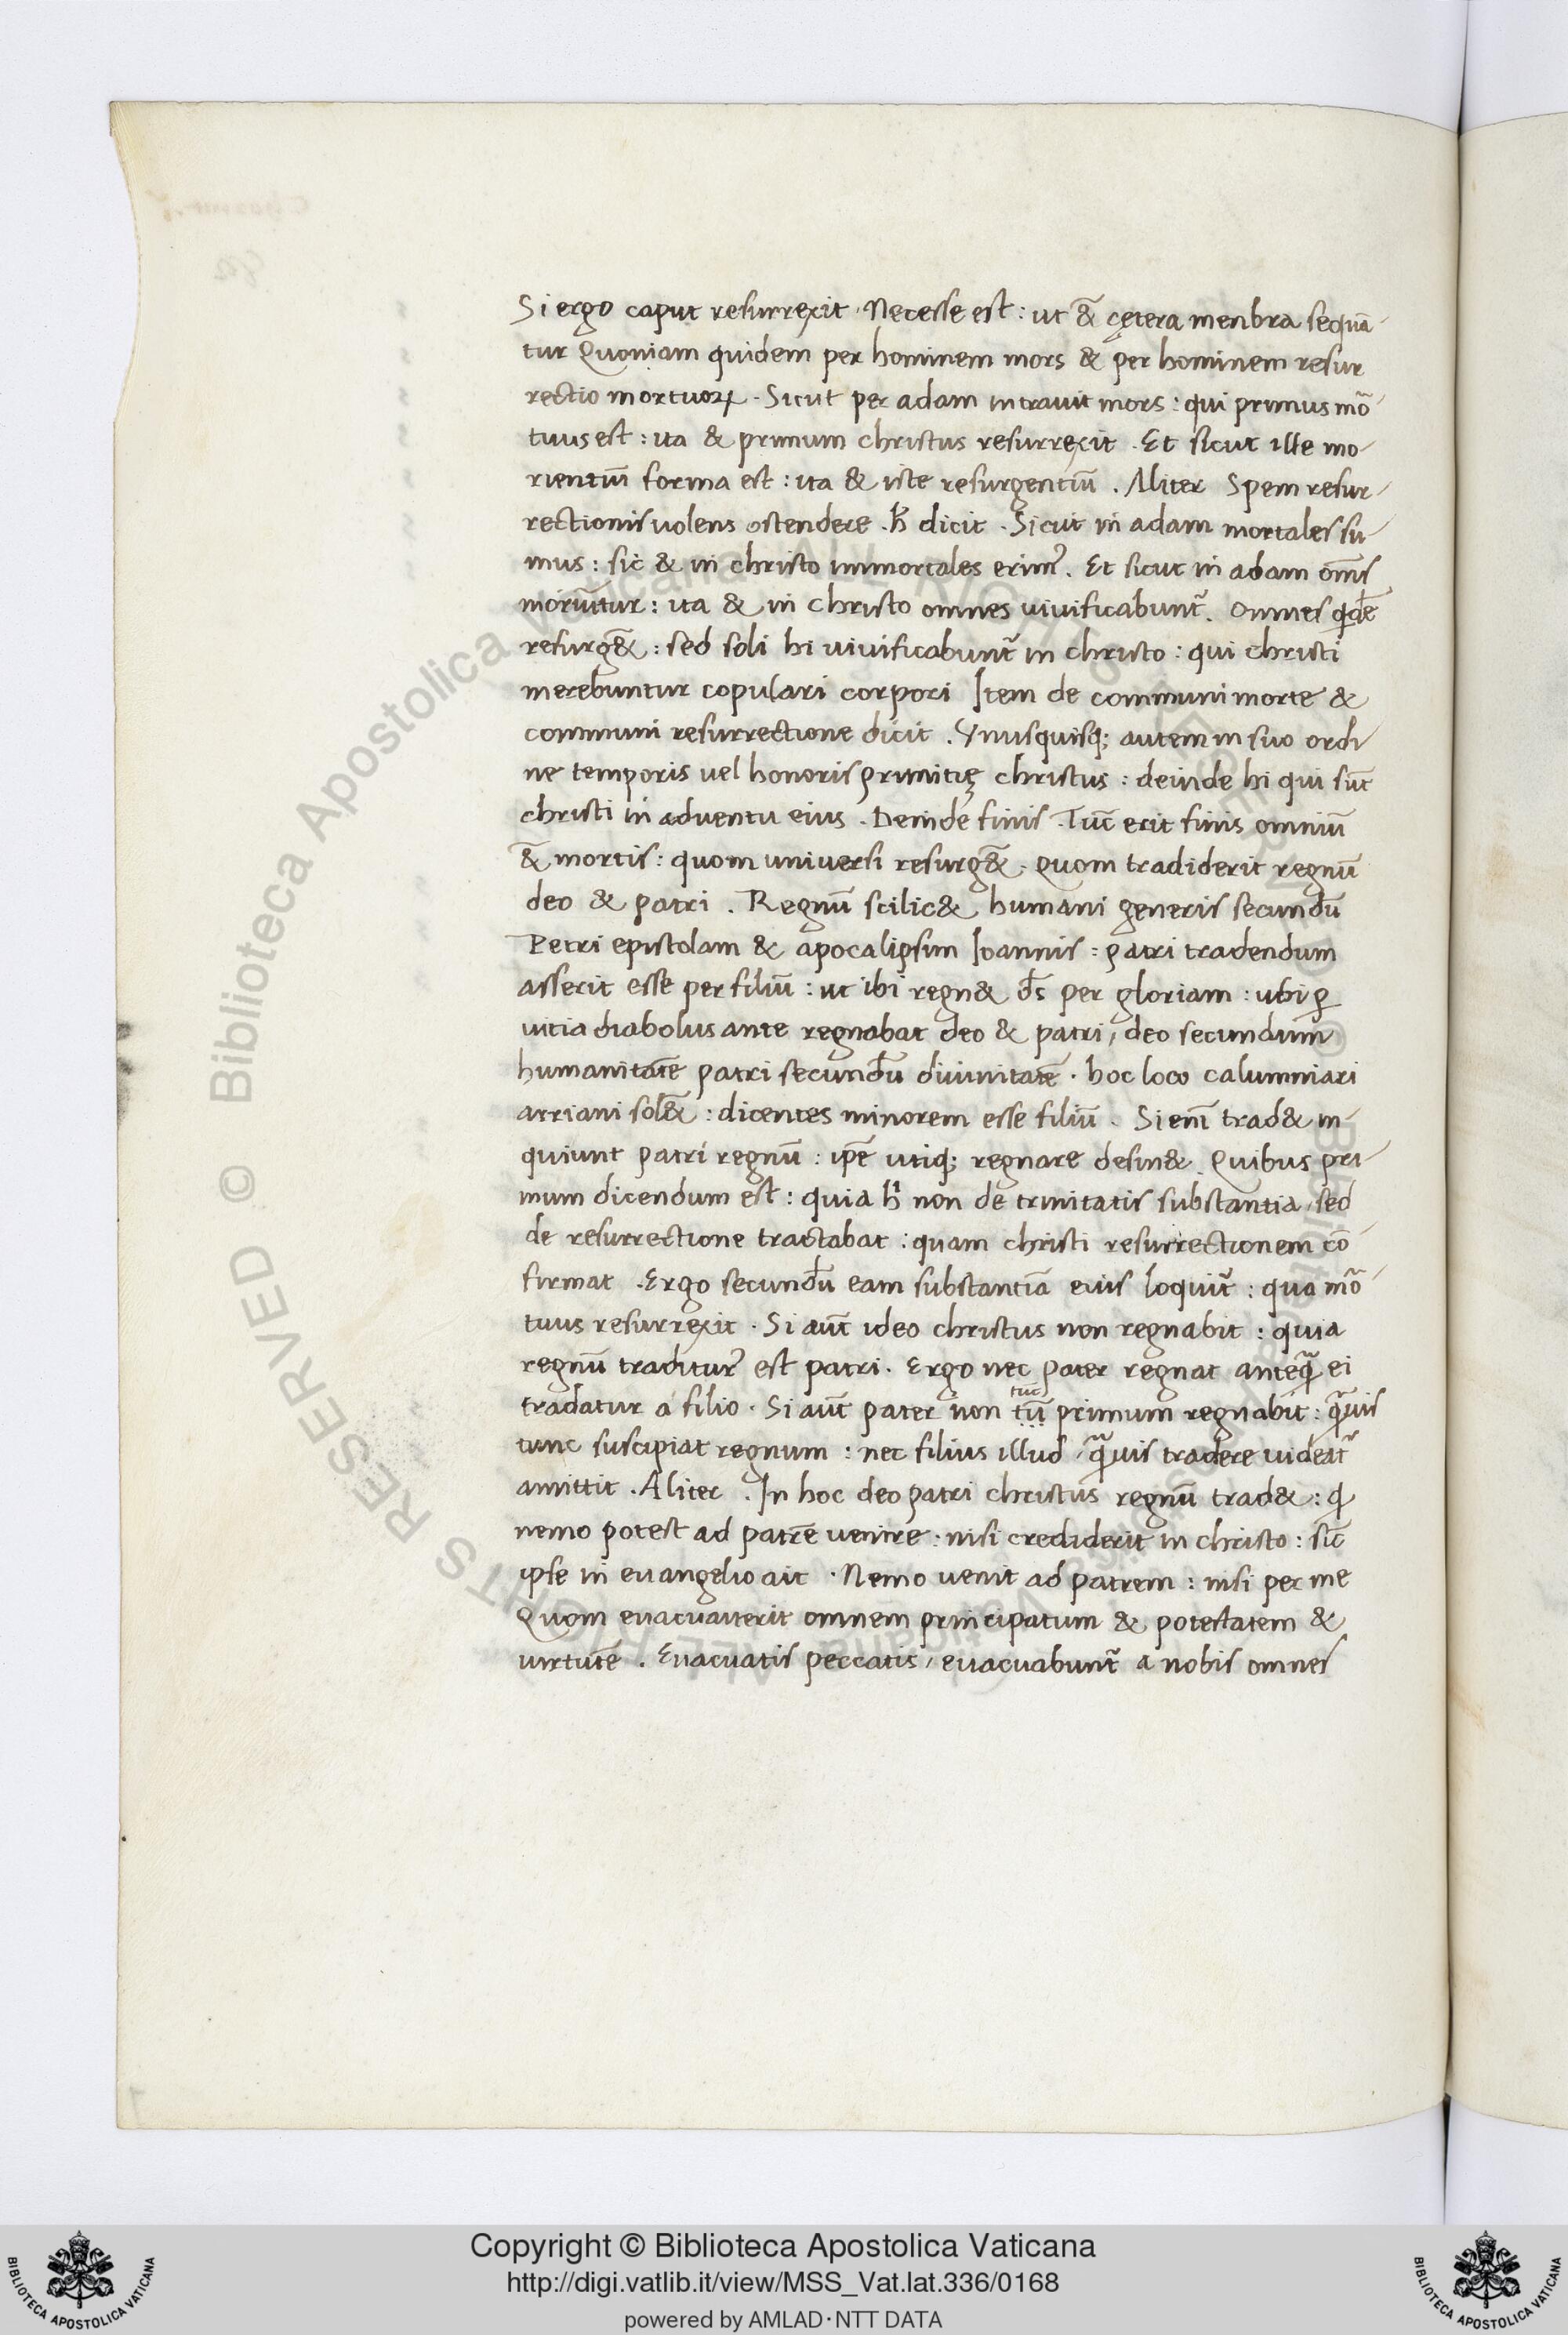 Si ergo caput resurrexit · Necesse est : ut &̄ cętera menbra sequā-
tur Quoniam quidem per hominem mors & per hominem resur
rectio mortuoꝝ · Sicut per adam intravit mors : qui primus mō-
tuus est : ita & primum christus resurrexit · Et sicut ille mo-
rientiū forma est : ita & iste resurgentiū . Aliter Spem resur-
rectionis uolens ostendere . h̄ dicit · Sicut in adam mortales su-
mus : sic & in christo immortales erim᷒ . Et sicut in adam om̄s
moriūtur : ita & in christo omnes uiuificabunt᷒ . Omnes qͥdē
resurg&̄ : sed soli hi uiuificabunt᷒ in christo : qui christi
merebuntur copulari corpori Item de communi morte &
communi resurrectione dicit . Vnusquisq; autem in suo ordi-
ne temporis uel honoris primitię christus : deinde hi qui sūt
christi in aduentu eius . Deinde finis . Tūc erit finis omniū
&̄ mortis : quom uniuersi resurg&̄ . Quom tradiderit regnū
deo & patri . Regnū scilic& humani generis secundū
Petri epistolam & apocalipsim Ioannis : patri tradendum
asserit esse per filiū : ut ibi regn& d̄s per gloriam : ubi ꝑ
uitia diabolus ante regnabat deo & patri, deo secundum
humanitatē patri secundū diuinitatē · hoc loco calumniari
arriani sol&̄ : dicentes minorem esse filiū . Si eni᷒ trad& in-
quiunt patri regnū : ip̄e utiq; regnare desin& . Quibus pri-
mum dicendum est : quia h̄ non de trinitatis substantia, sed
de resurrectione tractabat : quam christi resurrectionem cō-
firmat . Ergo secundū eam substantiā eius loquit᷒ : qua mō-
tuus resurrexit · Si aūt ideo christus non regnabit : quia
regnū traditur᷒ est patri . Ergo nec pater regnat anteq̄ ei
tradatur a filio · Si aūt pater non tū primum regnabit : q̄uis
tūc
tunc suscipiat regnum : nec filius illud, q̄uis tradere uideat᷒
amittit . Aliter . In hoc deo patri christus regnū trad& : ꝙ
nemo potest ad patrē uenire : nisi crediderit in christo : sic̄
ipse in euangelio ait · Nemo uenit ad patrem : nisi per me
Quom euacuauerit omnem principatum & potestatem &
uirtutē . Euacuatis peccatis, euacuabunt᷒ a nobis omnes
Copyright © Biblioteca Apostolica Vaticana
http://digi.vatlib.it/view/MSS_Vat.lat.336/0168
powered by AMLAD·NTT DATA
BIBLIOTECA APOSTOLICA VATICANA
BIBLIOTECA APOSTOLICA VATICANA